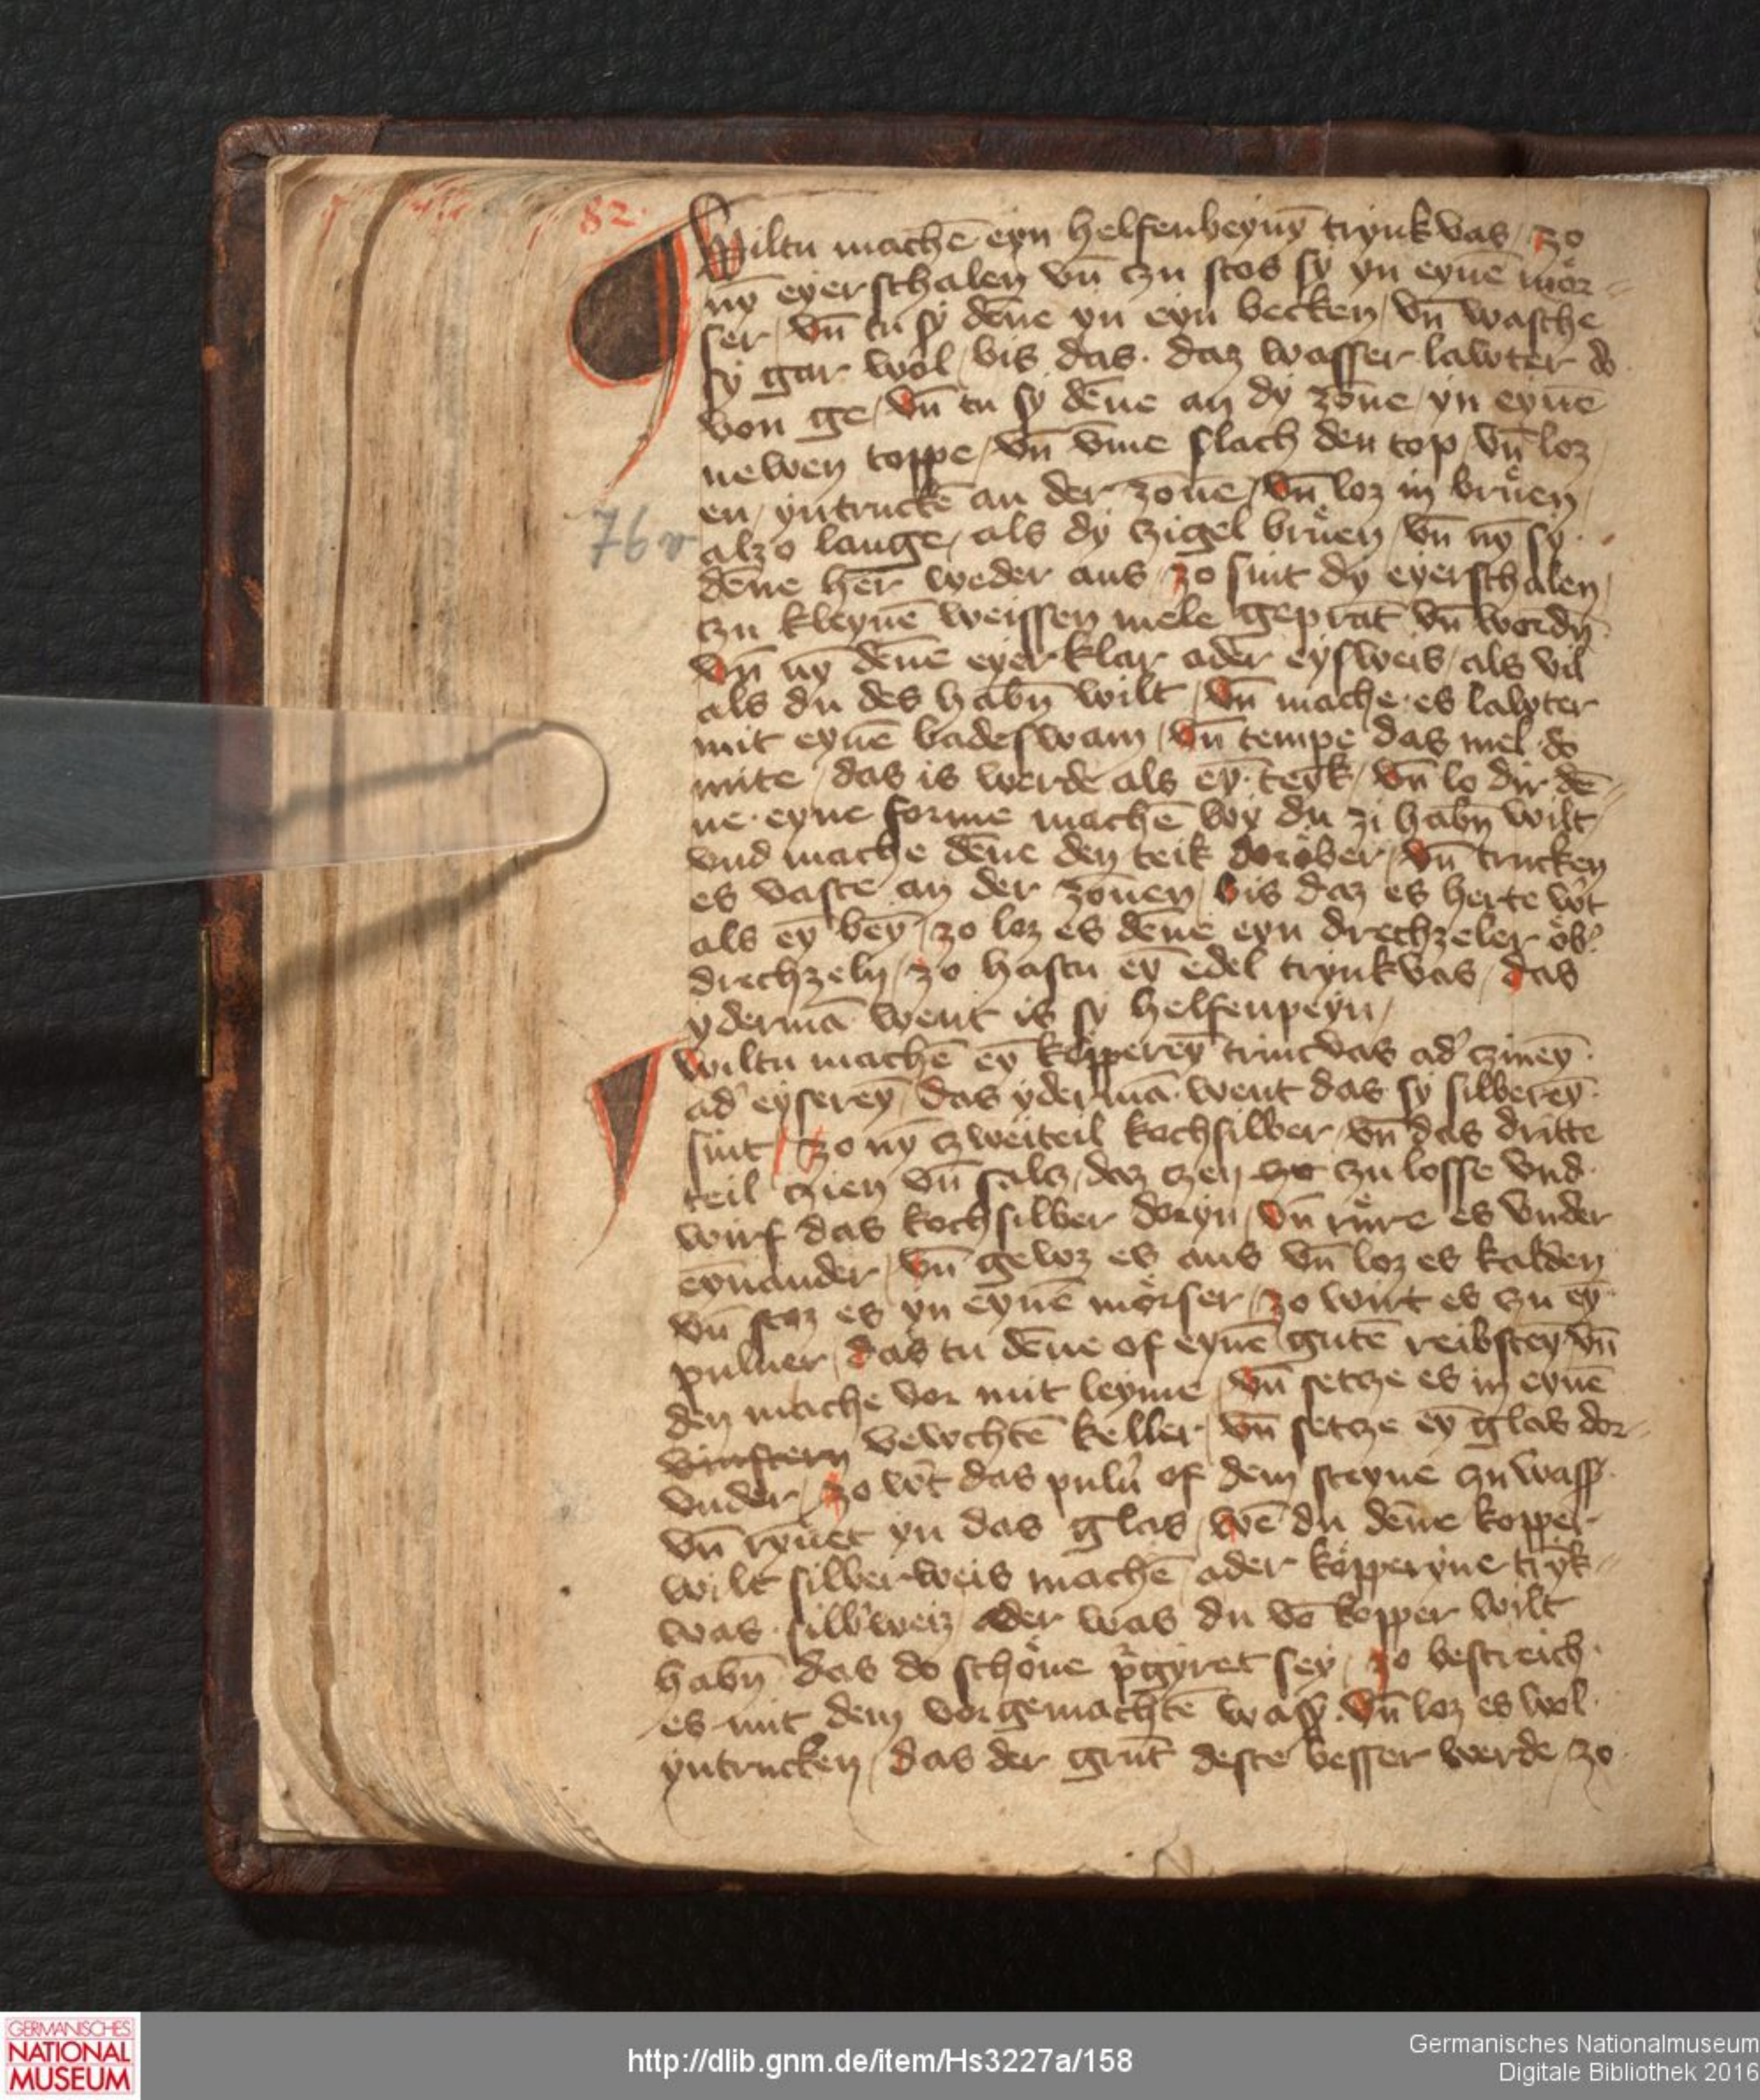 82.
Wiltu machē eyn helfenbeynyn trynkvas / zo
nÿ eyerschalen vn̄ czu stos sy yn eynē mör-
ser / vn̄ tu sy dēne yn eyn becken / vn̄ wasche
sy gar wol / bis das · daz wasser lawter do
von ge / vn̄ tu sy dēne an dy zōne / yn eynē
newen toppe / vn̄ vme slach den top / vn̄ loz
en / yntruckē an der zonē / vn̄ loz in brüen
alzo lange / als dy czigel brüen / vn̄ nȳ sy
76v
dēne her weder aus / zo sint dy eyerschalen
czu kleynē weissen mele geprāt vn̄ wordn̄
vn̄ nȳ dēne eyerklar ader eysweis / als vil
als du des habn̄ wilt / vn̄ mache es lawter
mit eynē badeswam / vn̄ tempe das mel do
mite / das is werde als eȳ teyk / vn̄ lo dir dē-
ne eyne forme machē wy du zi habn̄ wilt /
vnd mache dēne den teik doröber / vn̄ trucken
es vaste an der zonen / bis daz es herte wt
als eȳ beȳ / zo loz es dēne eyn drechzeler öb'
drechzeln / zo hastu eȳ edel trynkvas / das
ydermā went is sy helfenpeyn /
wiltu machē eȳ köppereȳ trincvas ad' czineȳ
ad' eysereȳ / das ydermā went das sy silbereȳ
sint / zo nȳ czweiteil kochsilber / vn̄ das dritte
teil czien vn̄ salcz / daz czen zo czu losse vnd
wirf das kochsilber doryn / vn̄ rüre es vnder
eynander / vn̄ geloz es aus vn̄ loz es kalden
vn̄ stoz es yn eynē mörser / zo wirt es czu eȳ
puluer / das tu dēne of eynē gutē reibsteȳ vn̄
den mache vor mit leyme / vn̄ setcze es in eynē
vinstern vewchtē keller / vn̄ setcze eȳ glas dor-
vnder / zo wt das pulu' of dem steyne czu wass
vn̄ rȳnet yn das glas / wē du dēne kopper
wilt silberweis machē / ader köpperyne trȳk-
was silb'weiz / ader was du vō kopper wilt
habn̄ das do schöne p'gyret sey / zo bestreich
es mit dem vorgemachtē wass / vn̄ loz es wol
yntrucken / das der grūt deste besser werde / zo
GERMANISCHES
NATIONAL
MUSEUM
http://dlib.gnm.de/item/Hs3227a/158
Germanisches Nationalmuseum
Digitale Bibliothek 2016